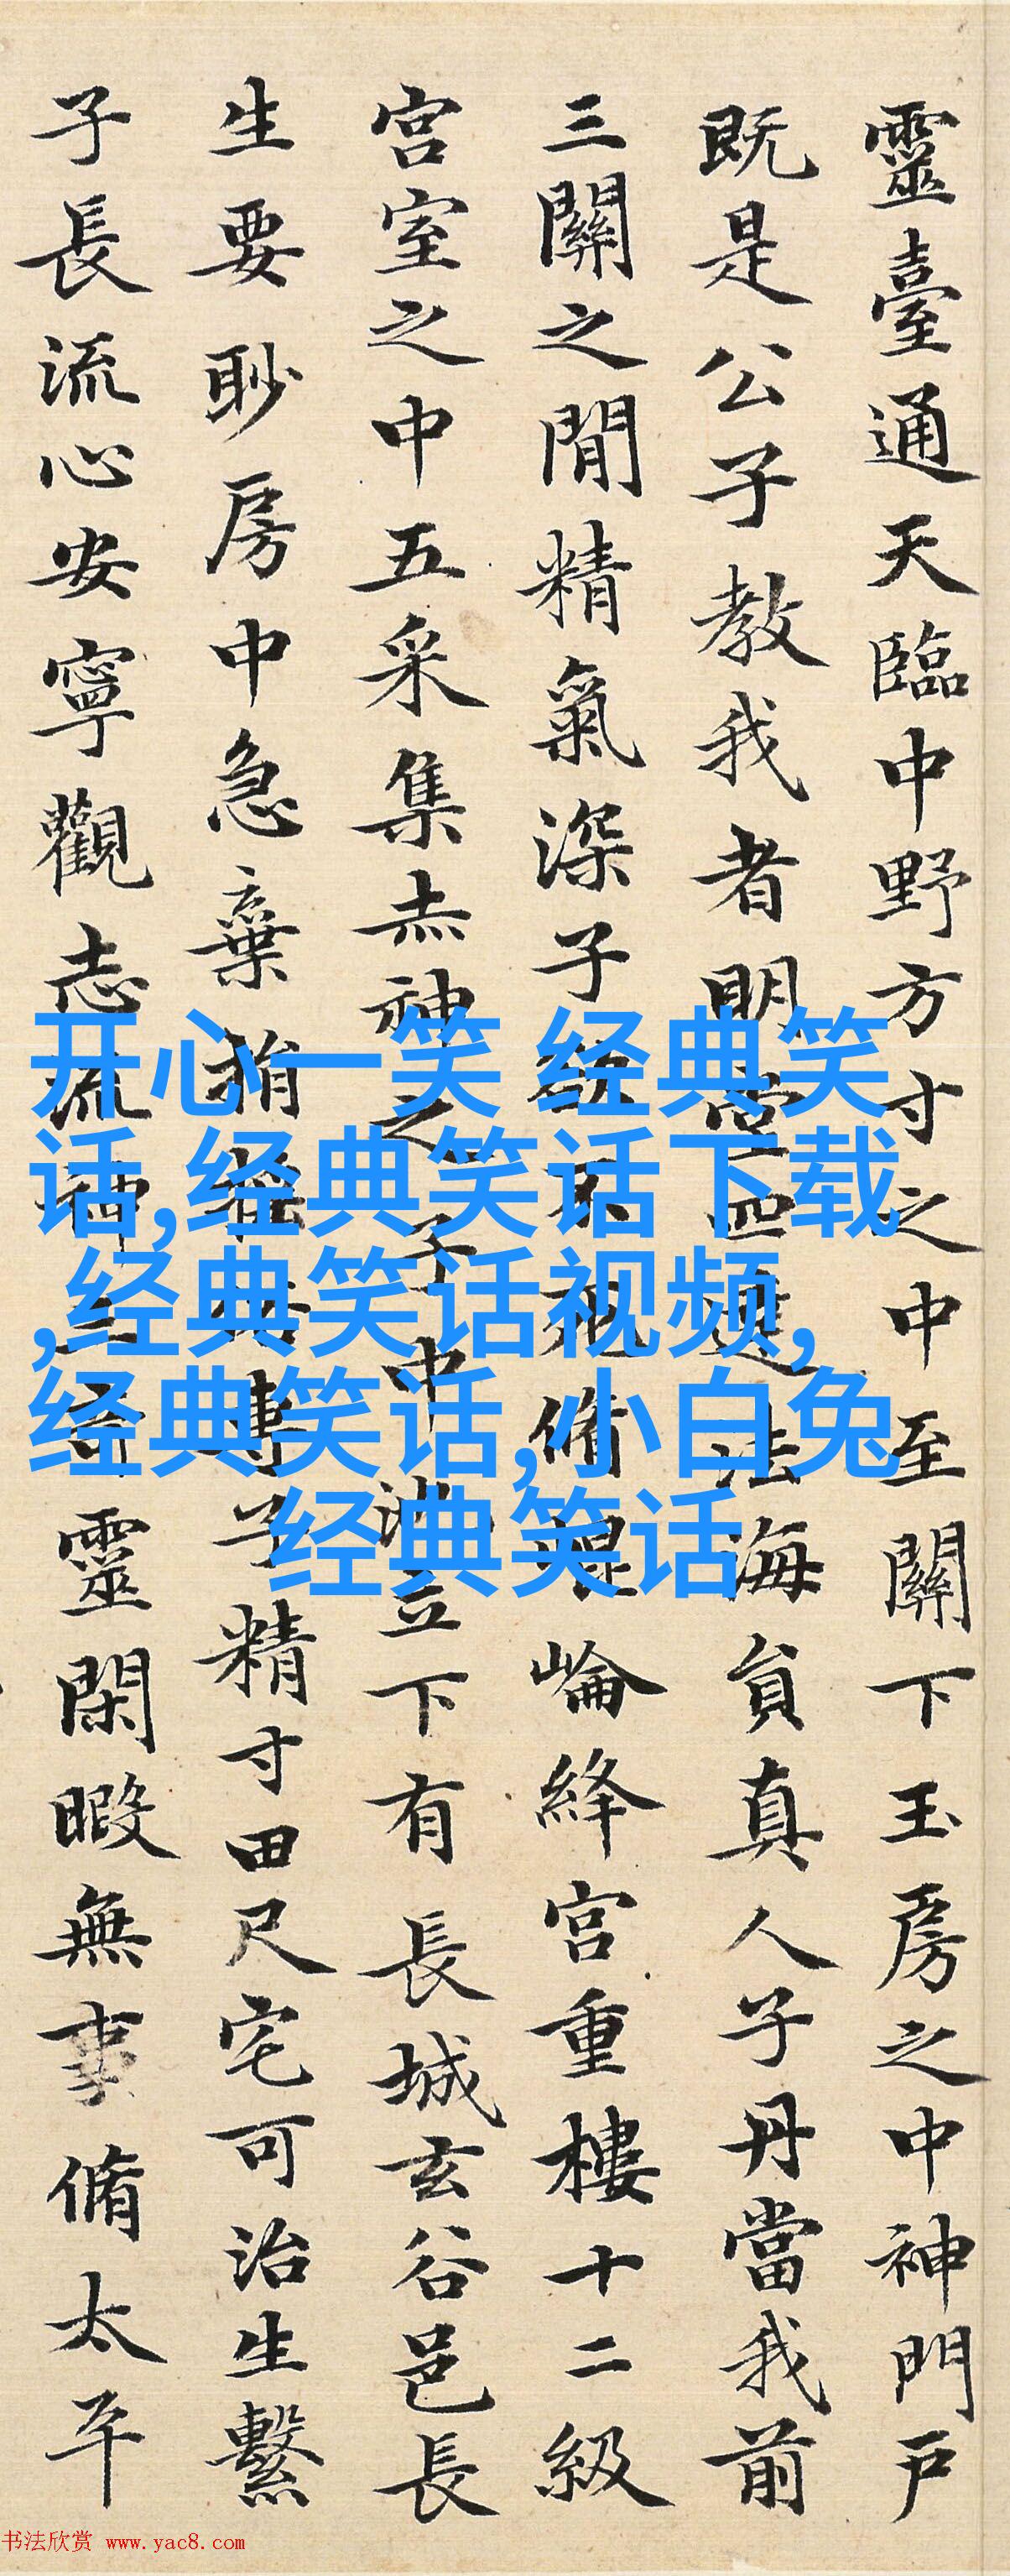 靈臺通天臨中野方寸之中至關下玉房之中神門戶
既是公子教我者明堂四達法海貟真人子丹當我前
三關之閒精氣深子欲不死脩崐崘絳宮重樓十二級
宮室之中五采集赤神之子中池立下有長城玄谷邑長
生要眇房中急棄捐淫俗專子精寸田尺宅可治生繫
子長流心安寧觀志流神三奇靈閑暇無事脩太平
开心一笑 经典笑
话,经典笑话下载
,经典笑话视频,
经典笑话,小白兔
经典笑话
书法欣赏 www.yac8.com